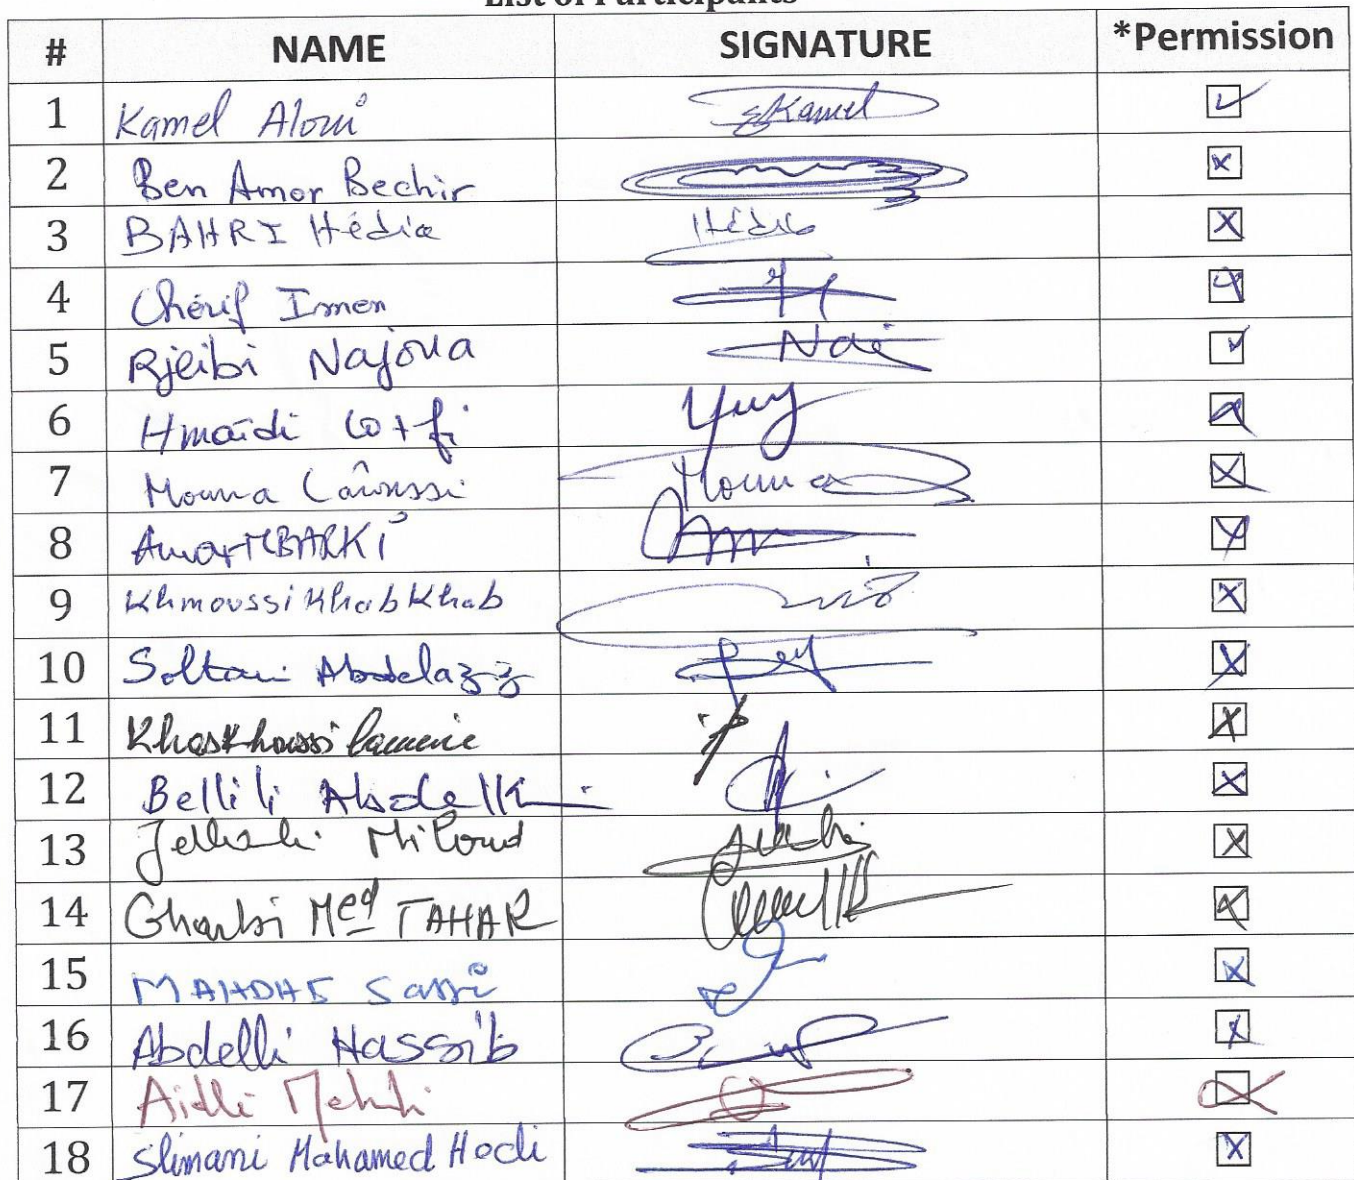 List of Participants
# NAME SIGNATURE *Permission
1 Kamel Aloui Kamel
2 Ben Amor Bechir
3 BAHRI Hédia Hédia
4 Chérif Imen
5 Rjeibi Najoua Naj
6 Hmaidi Lotfi
7 Mouna Laroussi Mouna
8 Amar MBARKI
9 Khmoussi Khabkhab
10 Soltani Abdelaziz
11 Khaskhoussi Lamine
12 Bellili
13 Jelhali Miloud
14 Gharbi Med TAHAR
15 MAHDHI Sassi
16 Abdelli Hassib
17 Aidli Mehdi
18 Slimani Mohamed Hedi